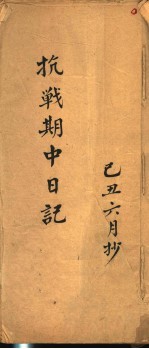 己丑六月抄
抗戰期中日記